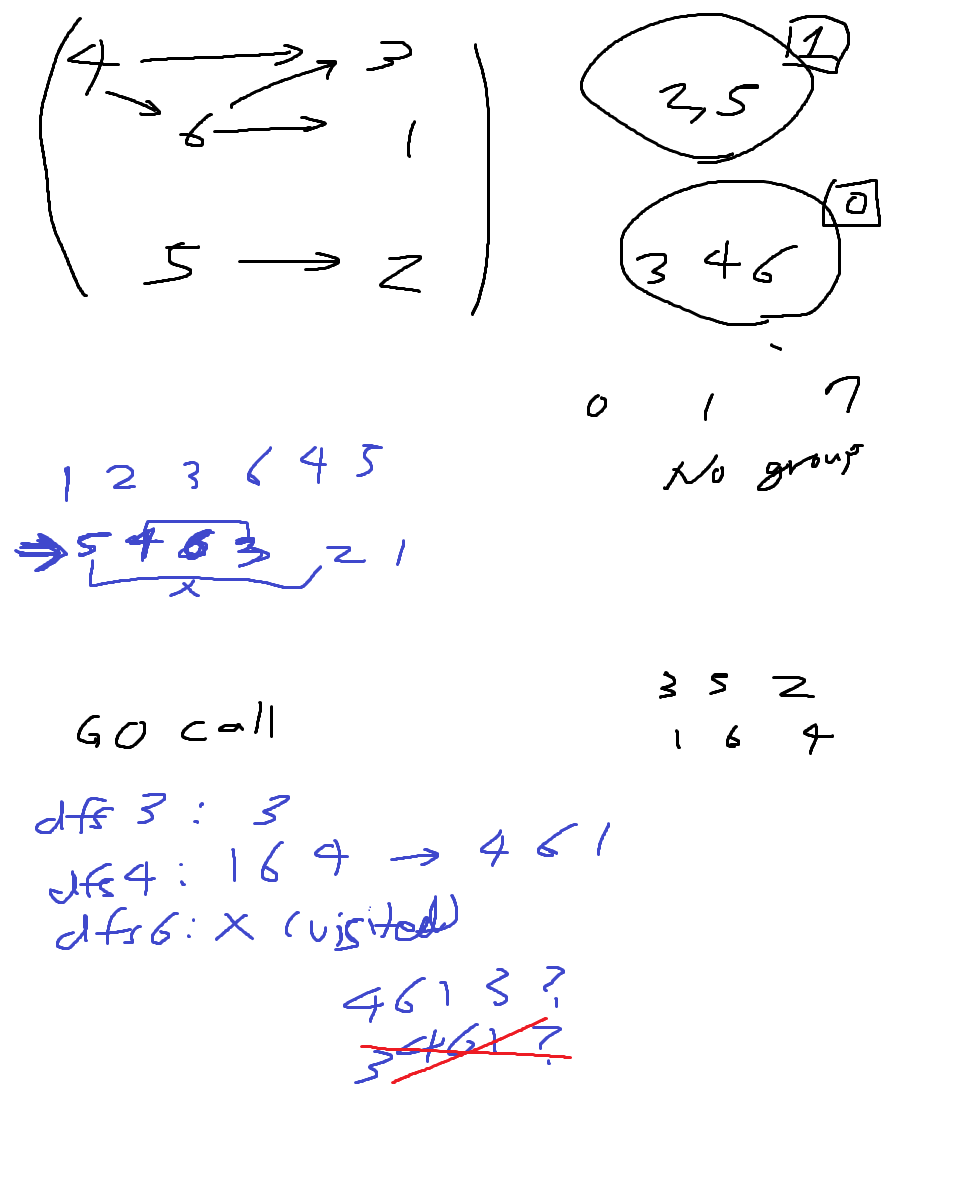 4 → 3
6 → 1
5 → 2
1
2,5
0
3 4 6
0 1 7
No group
1 2 3 6 4 5
⇒ 5 4 6 3 2 1
x
3 5 2
1 6 4
GO call
dfs 3 : 3
dfs 4 : 1 6 4 → 4 6 1
dfs 6 : X (visited)
4 6 1 3 ?
3 4 6 1 ?